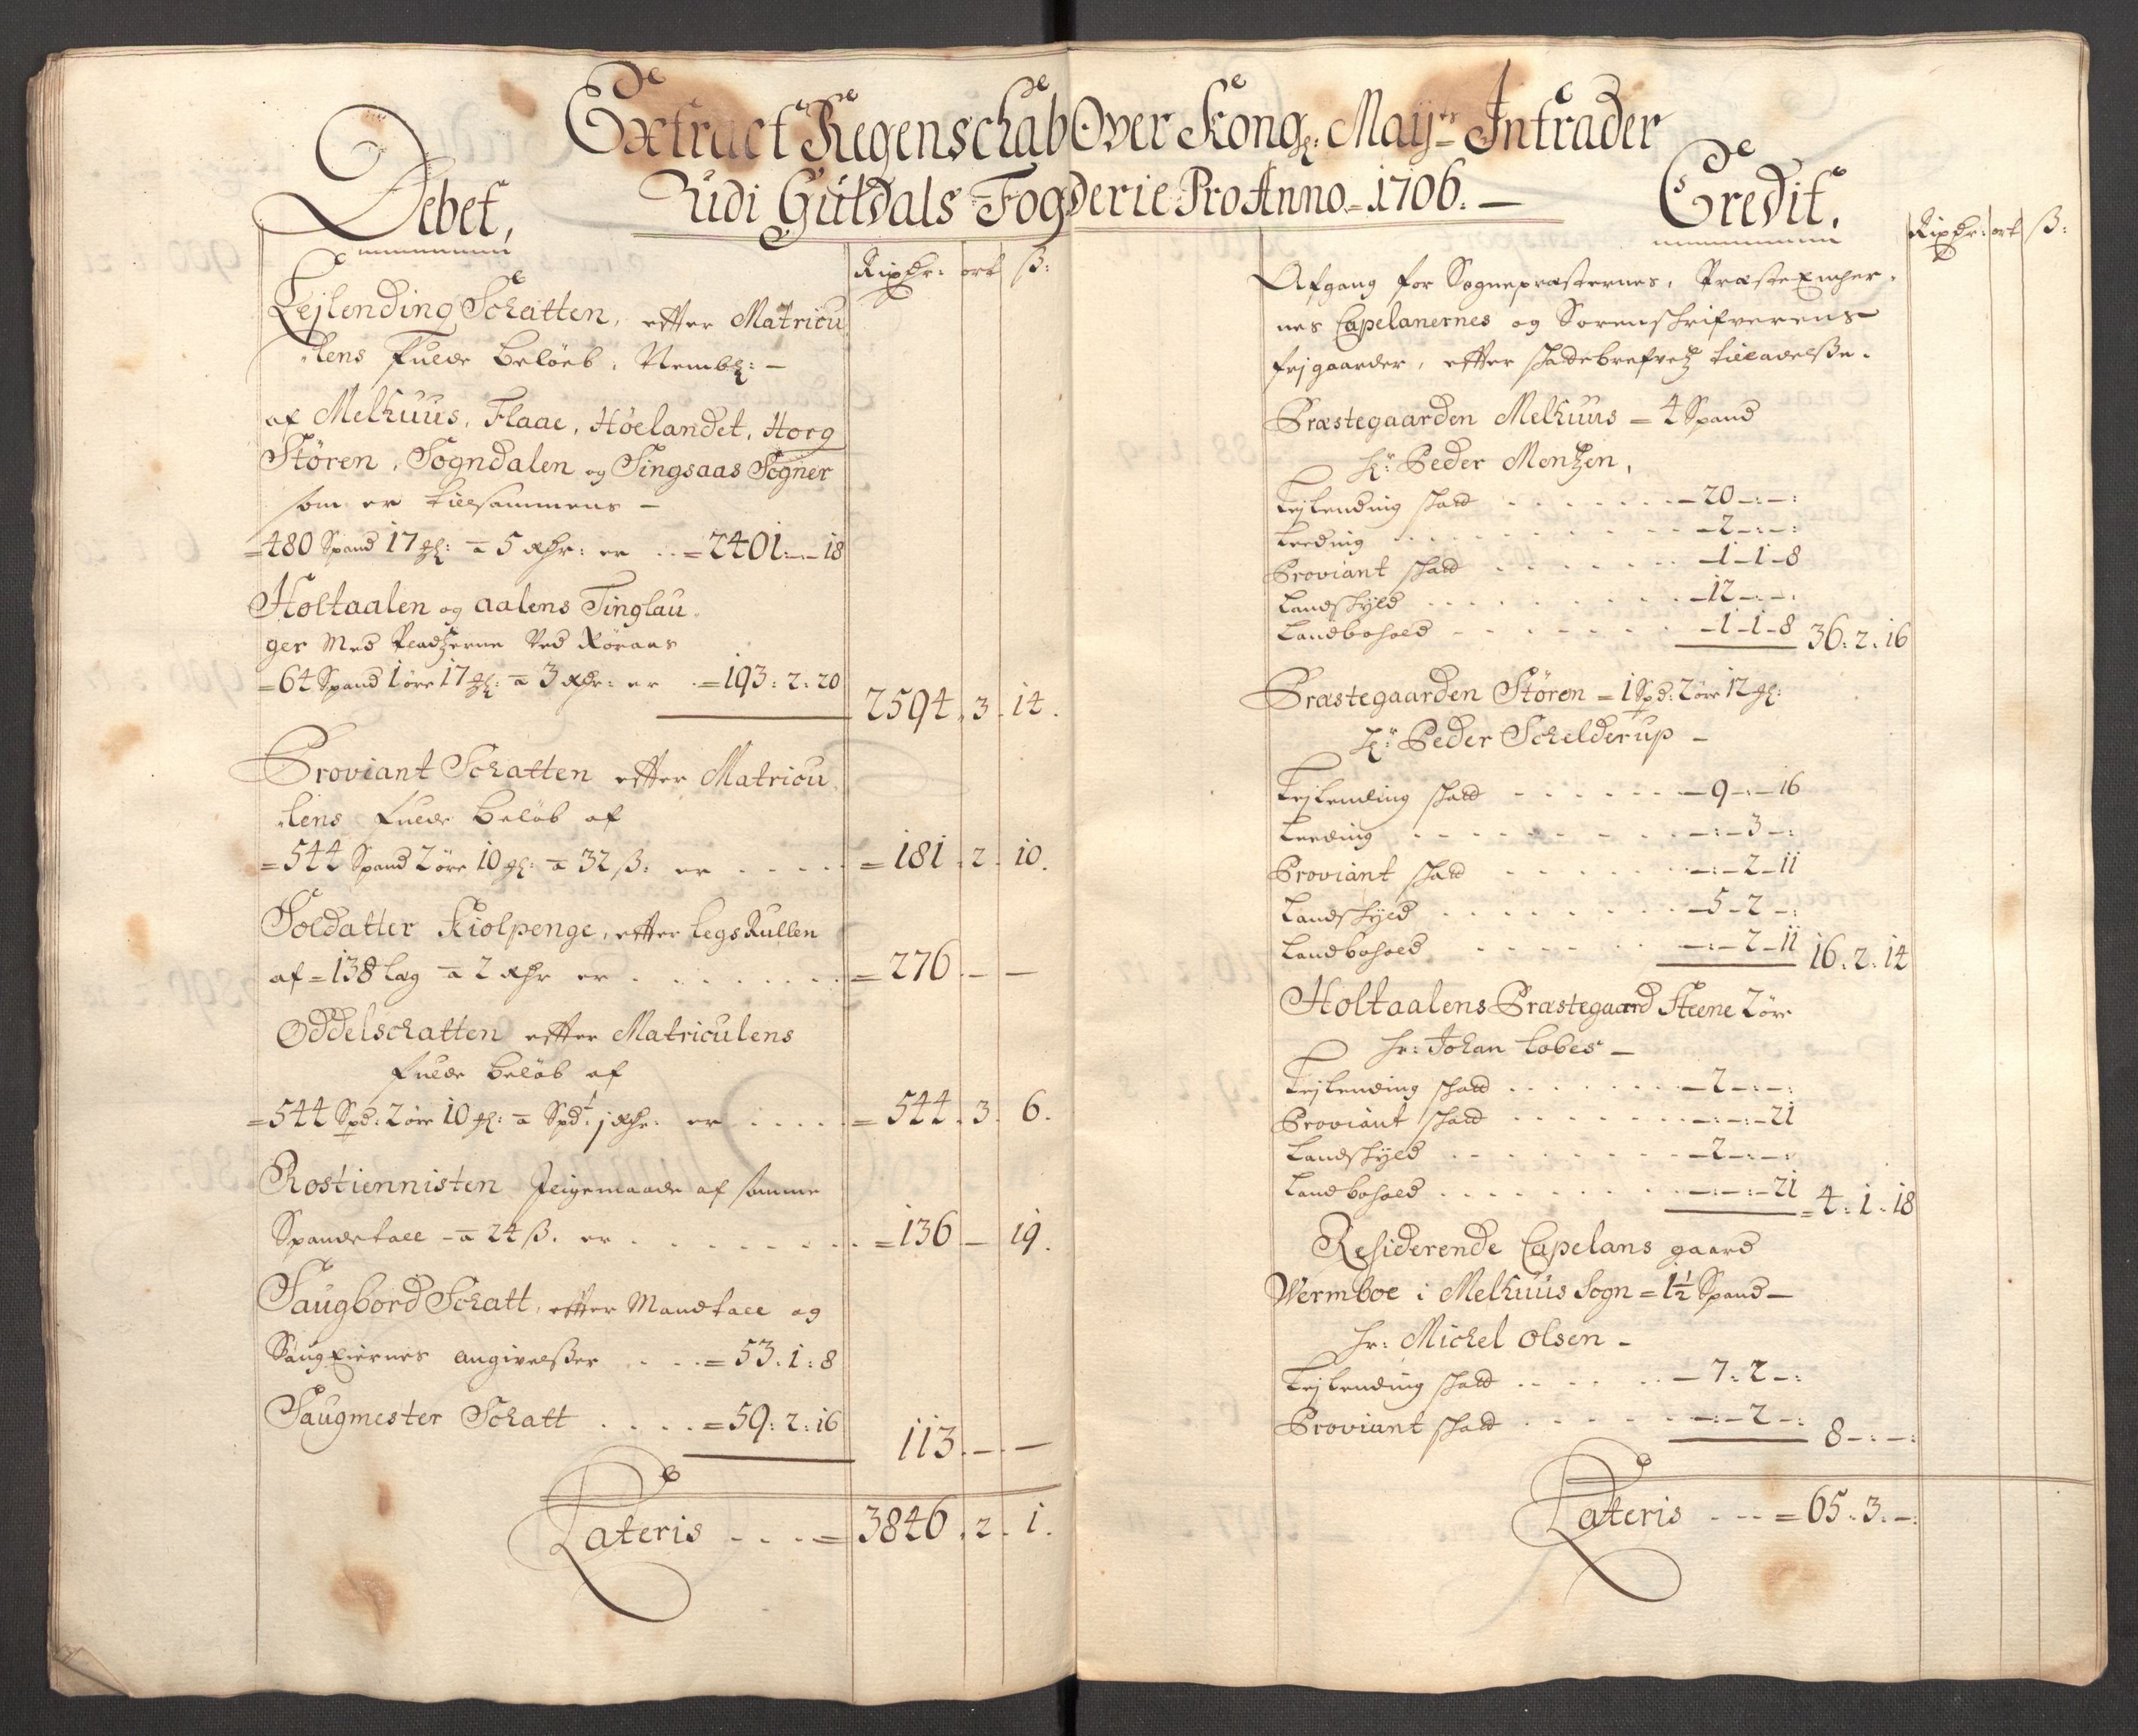 Extract Regenschab Over Kongl: Mayts Intrader
Udi Guldals Fogderie Pro Anno 1706. —
Debet,
Rixdr: ort ß:
Lejlending Schatten, efter Matricu
lens fulde beløeb, Nembl: —
af Melhuus, Flaae, Høelandet, Horg
Støren, Sogndalen og Singsaas Sogner
som er tilsammens —
= 480 Spand 17 #l: a 5 Rdr: er .. = 2401:—18
Holtaalen og Aalens Tinglau
ger Med Pladzerne Ved Røraas
= 64 Spand 1 øre 17 #l: a 3 Rdr: er . = 193: 2: 20
2594. 3. 14.
Proviant Schatten efter Matricu
lens fulde beløb af
= 544 Spand 2 øre 10 #l: a 32 ß: er .... = 181. 2. 10.
Soldatter Kiolpenge, efter LegsRullen
af = 138 Lag a 2 Rdr er ........ = 276. — —
Oddelschatten efter Matriculens
fulde beløb af
= 544 Spd: 2 øre 10 #l: a Spdt j Rdr: er .... = 544. 3. 6.
Rostiennisten Jligemaade af samme
Spandetall — a 24 ß. er ........ = 136 — 19.
Saugbord Schatt, efter Mandtall og
SaugEiernes angivelsser .... = 53. 1: 8
Saugmester Schatt ..... = 59: 2: 16
113. — —
Lateris .... = 3846. 2. 1.
Credit.
Rixdr: ort ß:
Afgang for Sognepræsternes, Præste Encher,
nes Capelanernes og Sorenskrifverens
frj gaarder, efter skattebrefvetz tilladelsse.
Præstegaarden Melhuus = 4 Spand
Hr: Peder Mentzen,
Lejlending skatt ...... — 20 —:—:
Leeding ......... — 2 —:—:
Proviant skatt ...... — 1 — 1 — 8
Landskyld ......... — 12 —:—.
Landbohold ....... — 1 — 1 — 8 36: 2. 16
Præstegaarden Støren = 1 Spd: 2 øre 12 #l:
Hr: Peder Schelderup —
Lejlending skatt ...... — 9 —:— 16
Leeding ......... —:— 3 —:
Proviant skatt ...... —:— 2 — 11
Landskyld ........ — 5 — 2 —:
Landbohold ...... —:— 2 — 11 16. 2. 14
Holtaalens Præstegaard Steene 2 øre
Hr: Johan Lobes —
Lejlending skatt ...... — 2 —:—:
Proviant skatt ....... —:—:— 21
Landskyld ........ — 2 —:—:
Landbohold ........ —:—:— 21 = 4. 1. 18
Residerende Capelans gaard
Wermboe i Melhuus Sogn = 1 1/2 Spand —
Hr: Michel Olsen —
Lejlending skatt ..... — 7: 2 —:
Proviant skatt ..... —:— 2 —: 8 —:—:
Lateris ... = 65. 3. —: